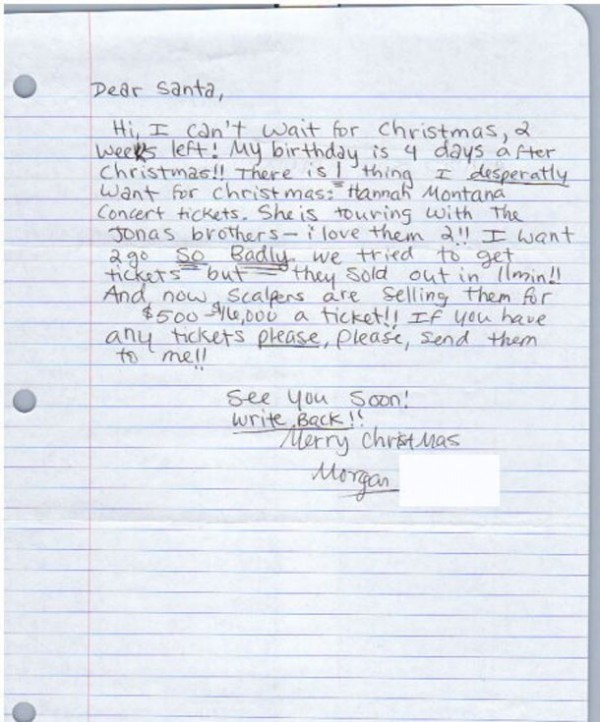 Dear Santa,
Hi, I can't wait for Christmas, 2
weeks left! My birthday is 4 days after
Christmas!! There is 1 thing I desperatly
want for christmas: Hannah Montana
Concert tickets. She is touring with The
Jonas brothers - i love them 2!! I want
2 go So Badly. we tried to get
tickets but they sold out in 11min!!
And now scalpers are selling them for
$500 - $16,000 a ticket!! If you have
any tickets please, please, send them
to me!!
See you soon!
write Back!!
Merry Christmas
Morgan